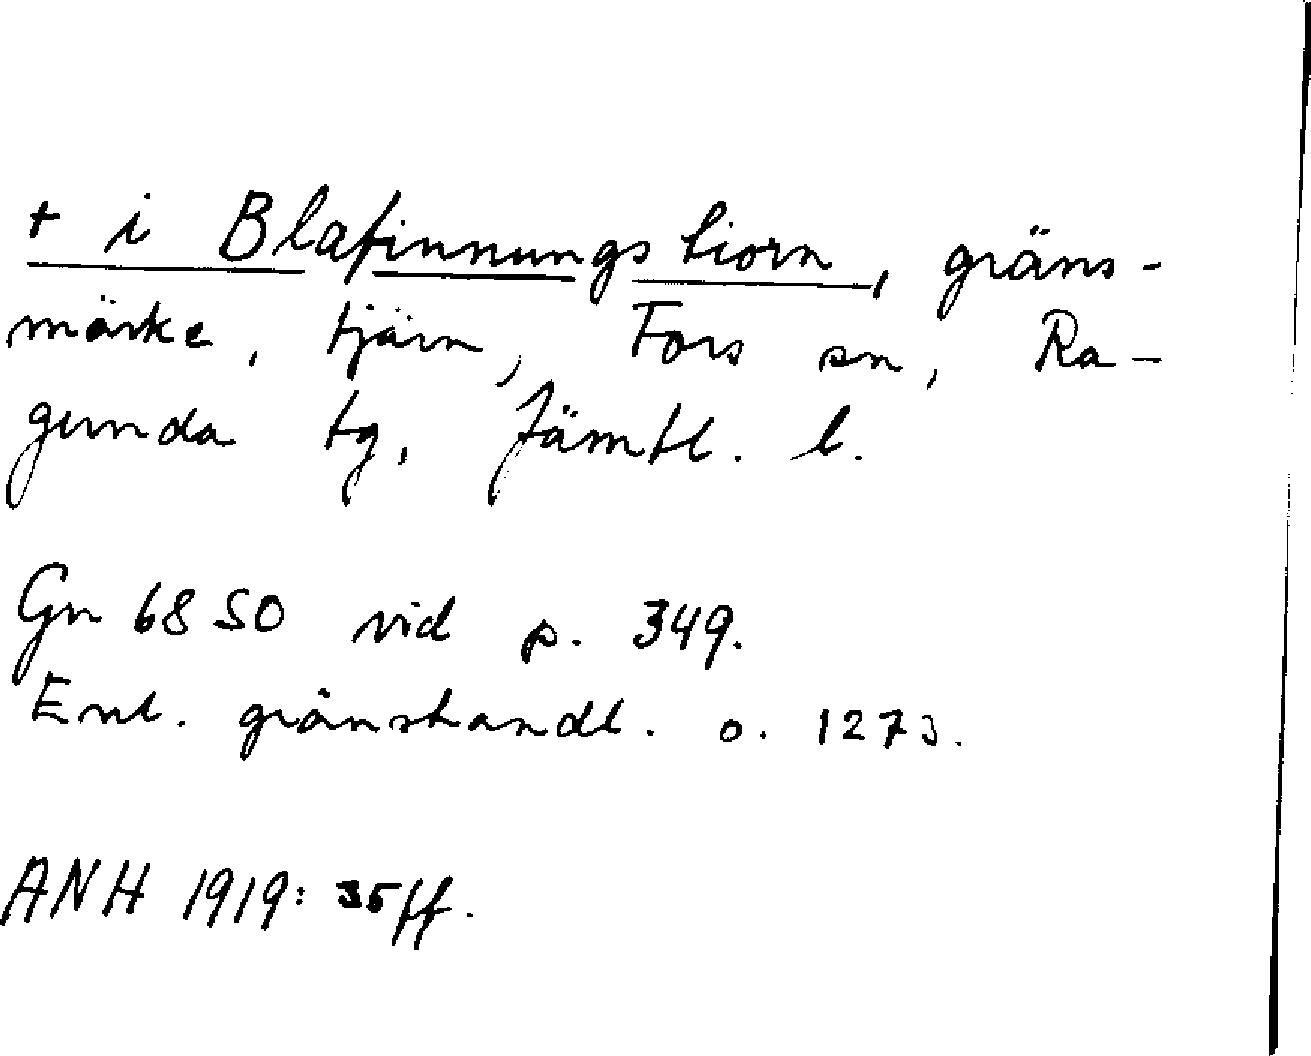 + i Blafinnungs tiorn, gräns-
märke, tjärn, Fors sn, Ra-
gunda tg, Jämtl. l.
Gn 68 SO vid p. 349.
Enl. gränshandl. o. 1273.
ANH 1919: 35 ff.